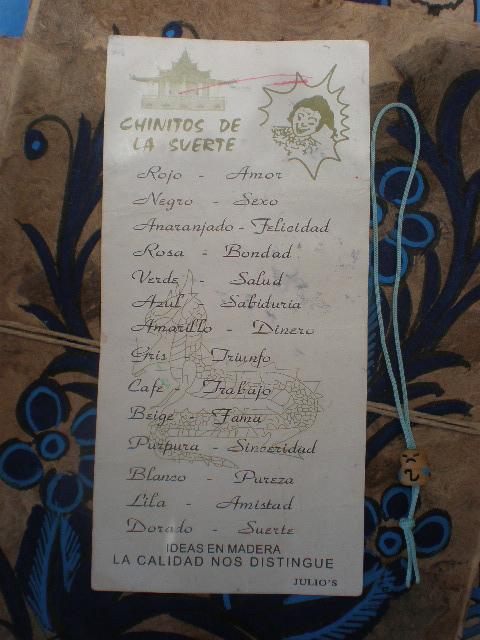 CHINITOS DE
LA SUERTE
Rojo - Amor
Negro - Sexo
Anaranjado - Felicidad
Rosa - Bondad
Verde - Salud
Azul - Sabiduria
Amarillo - Dinero
Gris - Triunfo
Cafe - Trabajo
Beige - Fama
Purpura - Sinceridad
Blanco - Pureza
Lila - Amistad
Dorado - Suerte
IDEAS EN MADERA
LA CALIDAD NOS DISTINGUE
JULIO'S